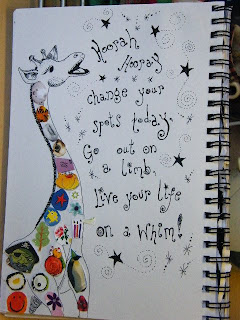 Hoorah
Hooray
change your
spots today.
Go out on
a limb,
Live your life
on a whim!